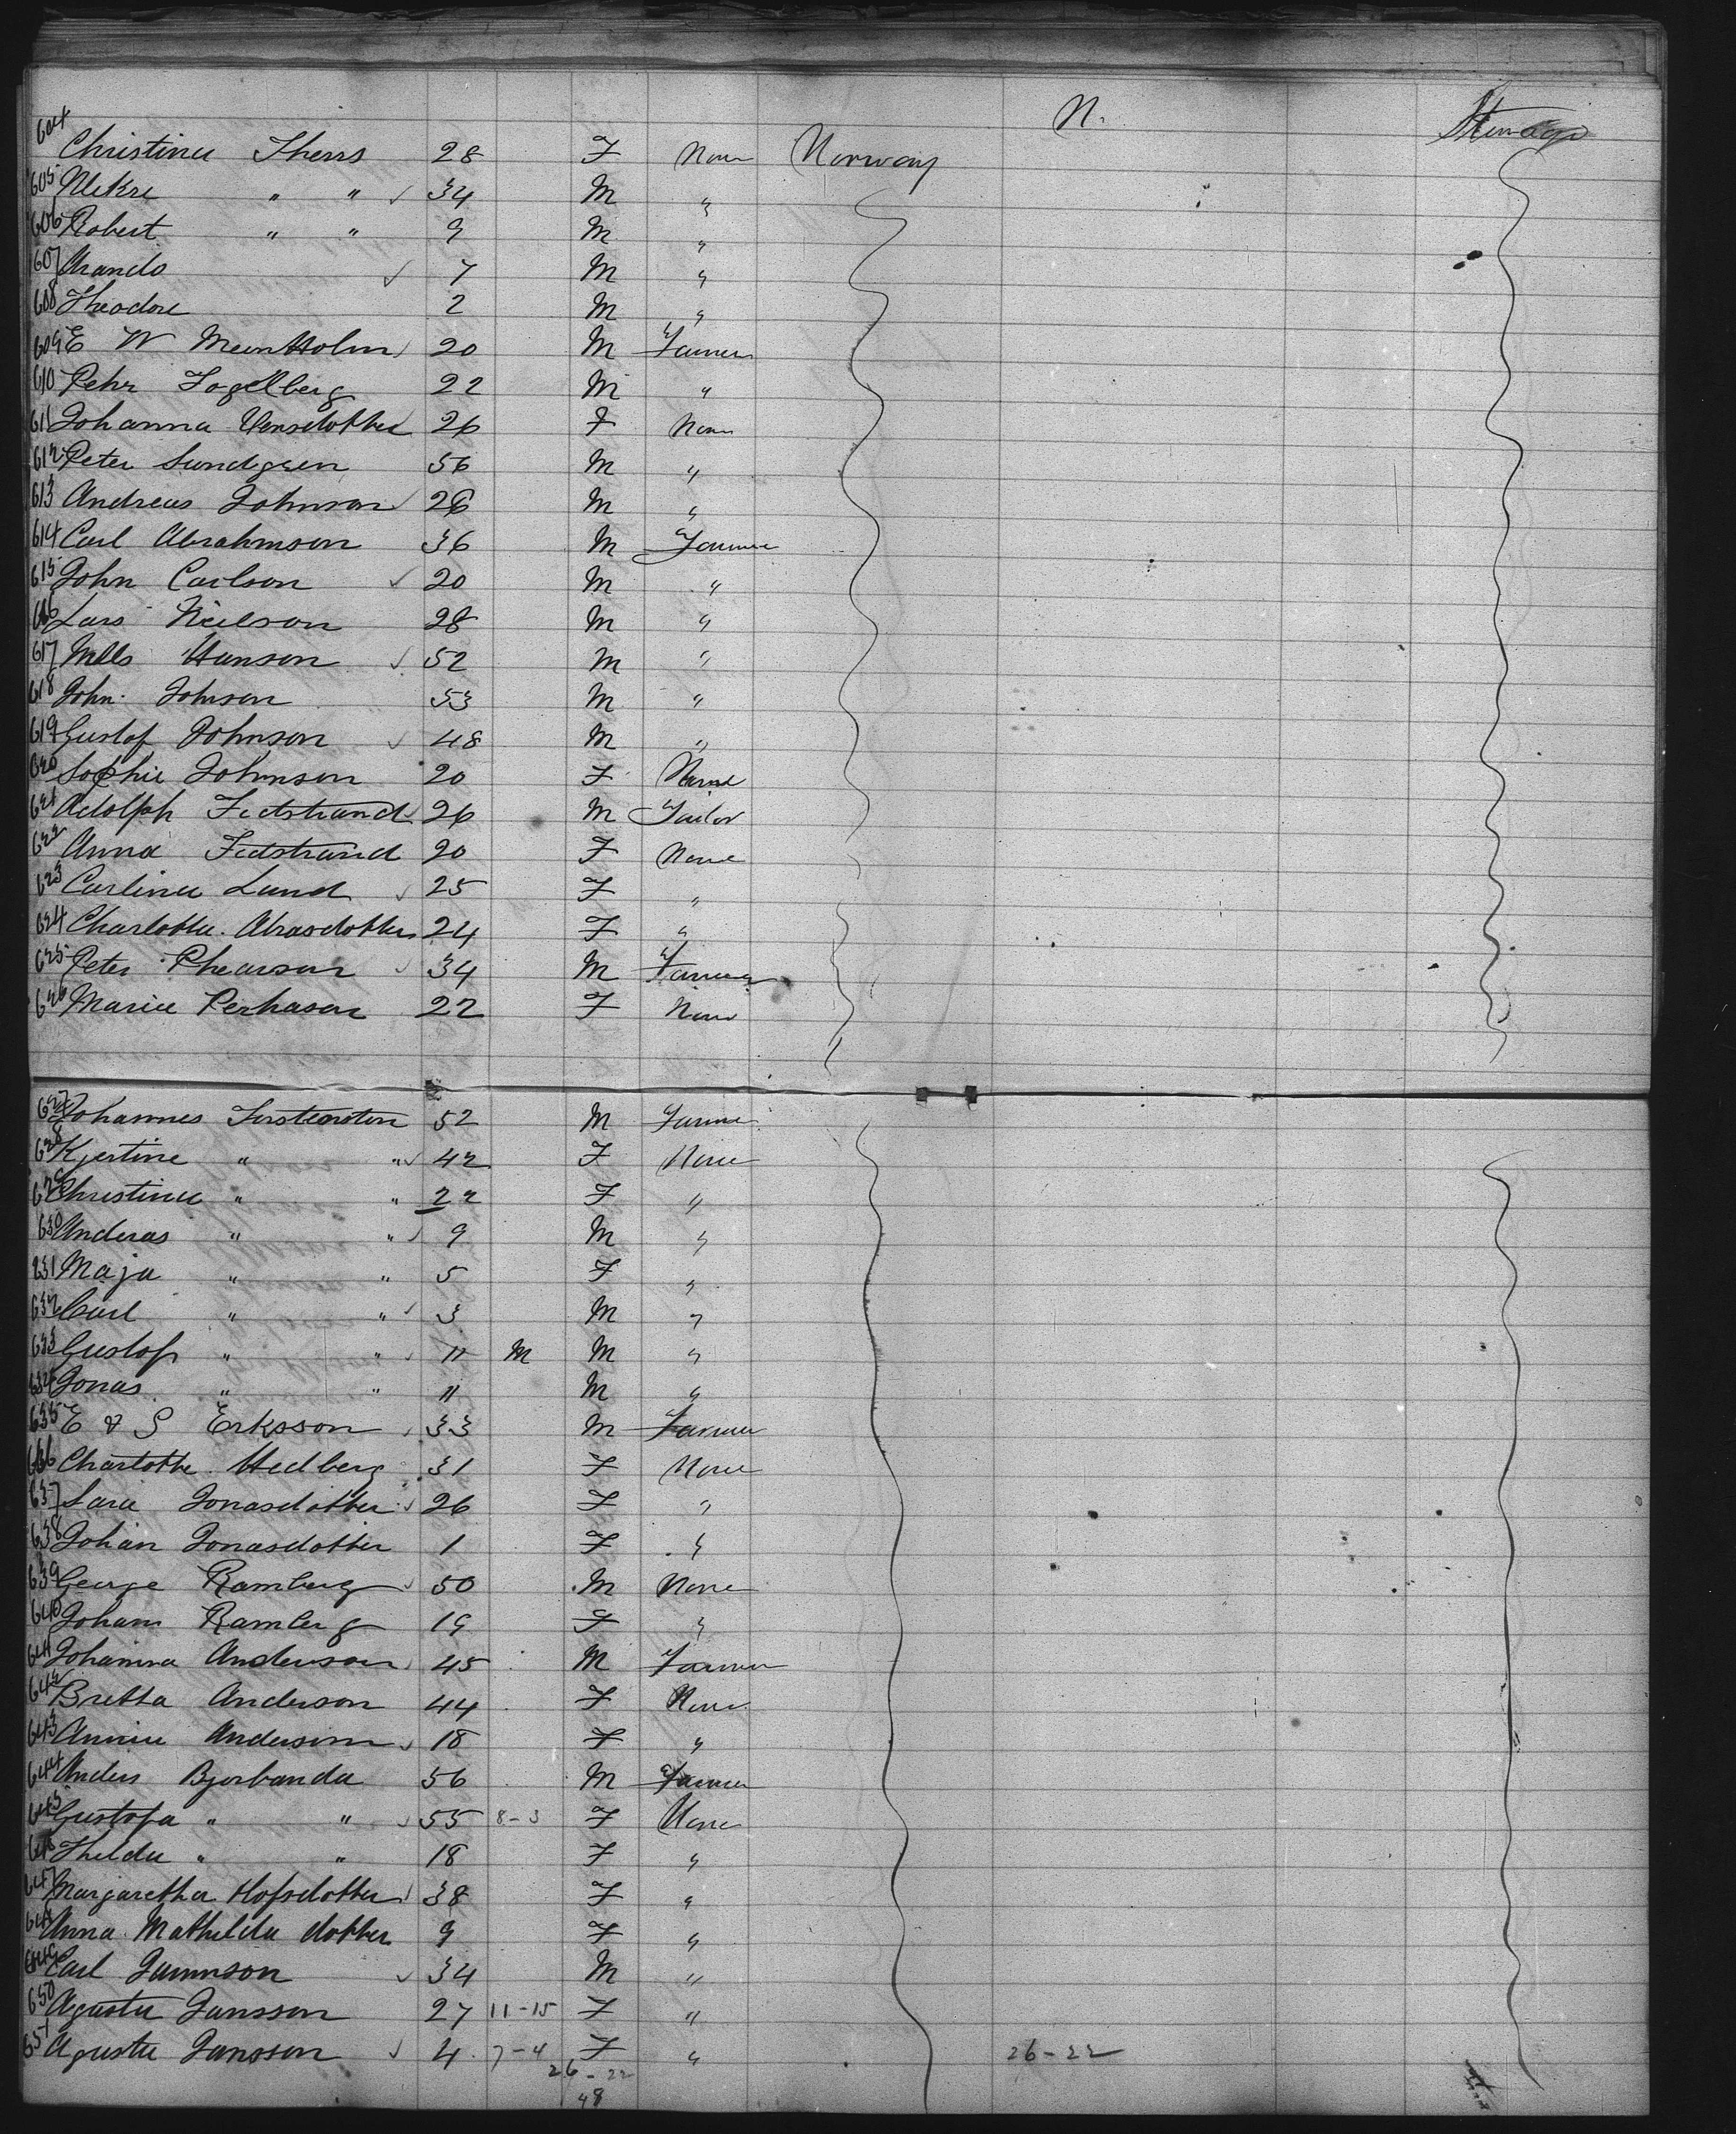 N. Steerage
604 Christina Therrs 28 F None Norway
605 " " 34 M "
606 Robert " " 9 M "
607 7 M "
608 Theodore 2 M "
609 E W 20 M Farmer
610 Pehr Fogelberg 22 M "
611 Johanna 26 F None
612 Peter Sundgren 56 M "
613 Andreas Johnson 26 M "
614 Carl Abrahmson 36 M Farmer
615 John Carlson 20 M "
616 Lars Neilson 28 M "
617 Hanson 52 M "
618 John Johnson 53 M "
619 Gustof Johnson 48 M "
620 Sophie Johnson 20 F None
621 Adolph Fidstrand 26 M Tailor
622 Anna Fidstrand 20 F None
623 Carlina Lund 25 F "
624 Charlotta Abrasdotter 24 F "
625 Peter Phearson 34 M Farmer
626 Maria Perhason 22 F None
627 Johannes 52 M Farmer
628 Kjertine " " 42 F None
629 Christina " " 22 F "
630 Anderas " " 9 M "
631 Maja " " 5 F "
632 Carl " " 3 M "
633 Gustof " " 11 M M "
634 Jonas " " 11 M "
635 E & S Erksson 33 M Farmer
636 Charlotte Hedberg 31 F None
637 Sara Jonasdotter 26 F "
638 Johan Jonasdotter 1 F "
639 George Ramberg 50 M None
640 Johan Ramberg 19 F "
641 Johanna Anderson 45 M Farmer
642 Bretta Anderson 44 F None
643 Annie Anderson 18 F "
644 Anders Bjorbanda 56 M Farmer
645 Gustofa " " 55 8-3 F None
646 Thilda " " 18 F "
647 Margaretha Hofsdotter 38 F "
648 Anna Mathilda dotter 9 F "
649 Carl 34 M "
650 Agusta Jansson 27 11-15 F "
651 Agusta Jansson 4 7-4 F " 26-22
26-22
48